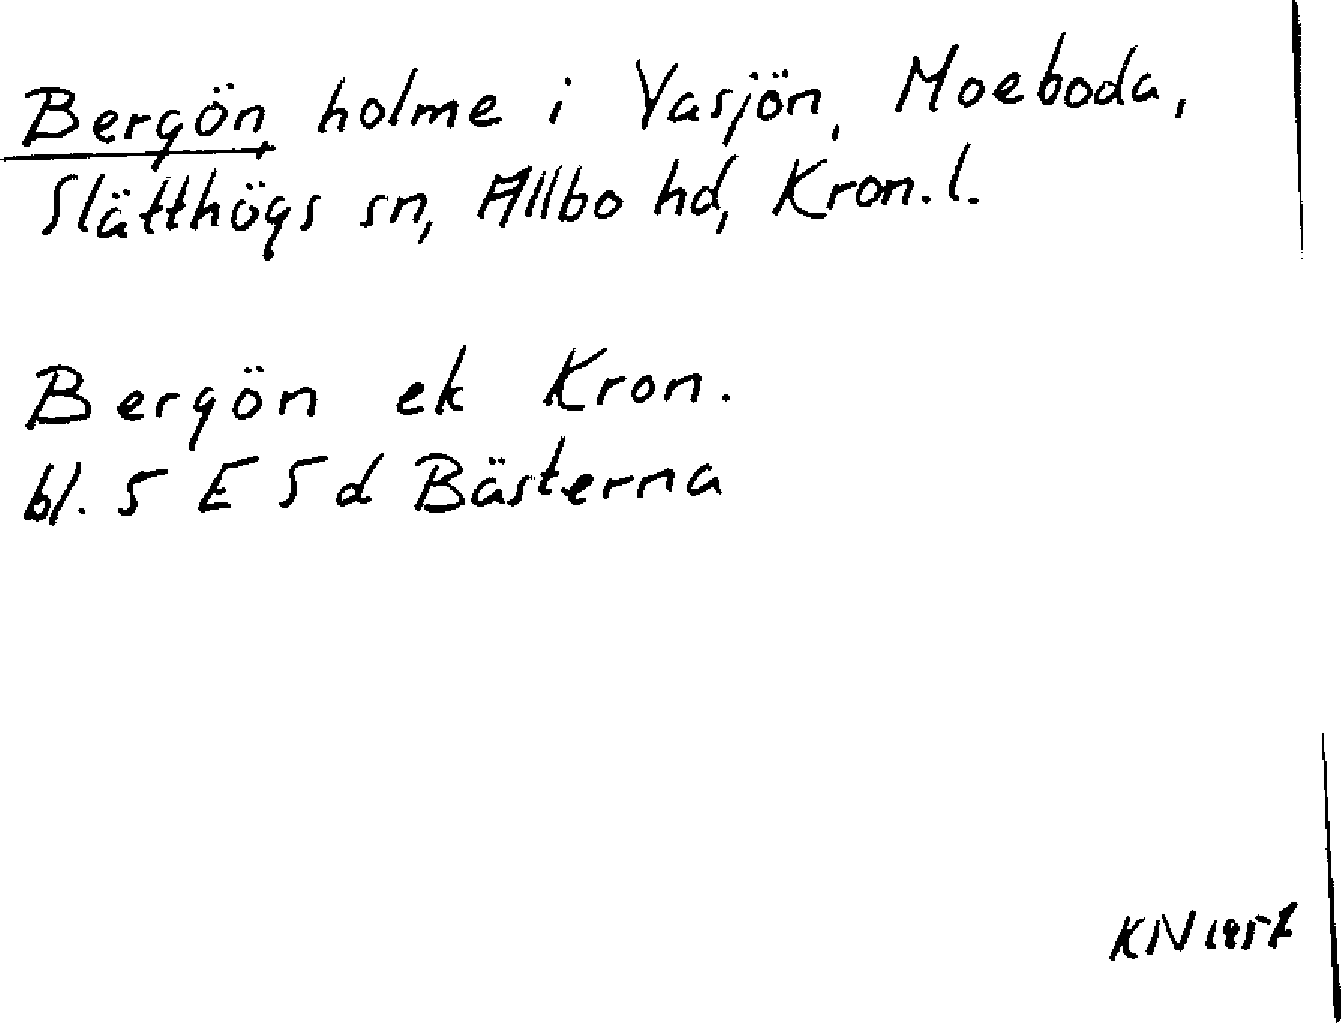 Bergön, holme i Vasjön, Moeboda,
Slätthögs sn, Allbo hd, Kron. l.
Bergön ek Kron.
bl. 5 E 5 d Bästerna
KN 1957